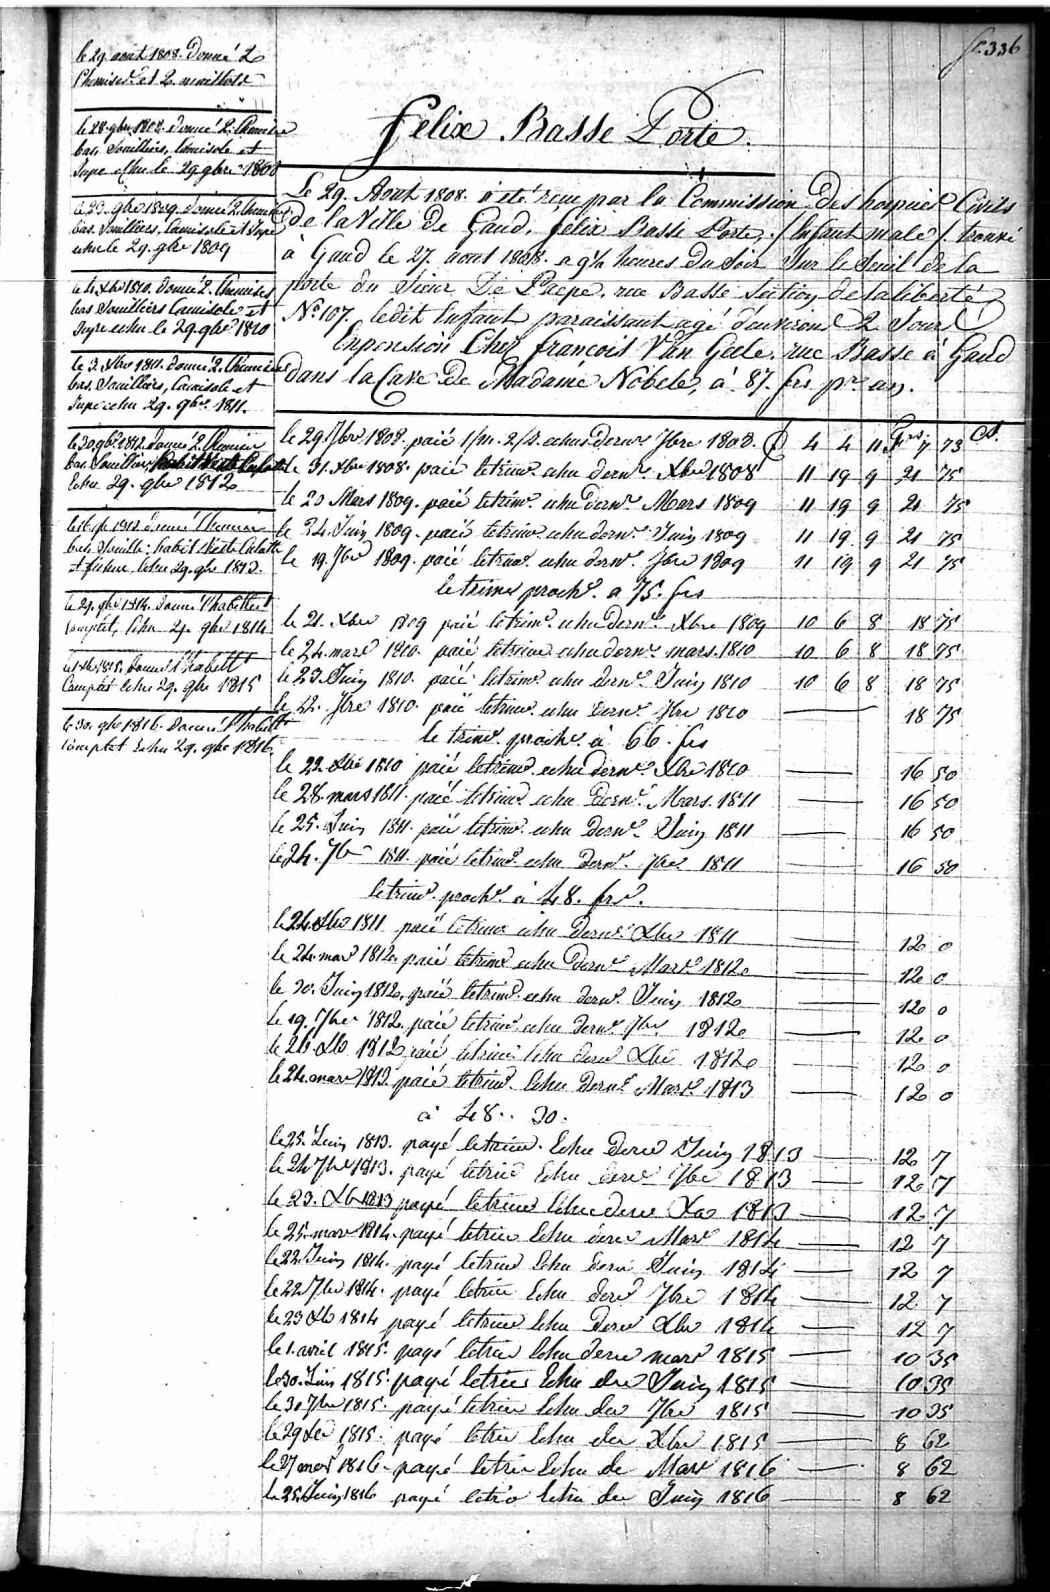 fo. 336
le 29 août 1808. Donné 2
Chemises et 2
le 28. gbre 1808. donné 2. Chemise
bas, Souilliers, Camisole et
Jupe Echu le 29 gbre 1808
le 23. gbre 1809. donné 2. Chemise
bas. Souilliers, Camisole et Jupe
echu le 29. gbre 1809
le Xbre 1810. Donné 2. Chemises
bas Souilliers Camisole et
Jupe echu le 29 gbre 1810
le 3. Xbre 1811. donné 2 Chemises
bas. Souilliers, Camisole et
Jupe echu 29. gbre. 1811.
le 30 gbre. 1812. donné 2 Chemise
bas Souilliers
Echu 29. gbre 1812
1813 donné Chemise
bas Souille: habit Culotte
et echu 29. gbre 1813.
le 29. gbre 1814. donné l'habillet
complet, Echu 29. gbre 1814
1815. donné l'habillt
Complet echu 29. gbre 1815
le 30. gbre 1816. donné l'habillt
complet Echu 29. gbre 1816.
Felix Basse Porte.
Le 29. Aout 1808. a été reçu par la Commission Des hospices Civils
De la Ville De Gand, felix Basse Porte, /Enfant male/. trouvé
à Gand le 27. aout 1808. a 9½ heures du Soir Sur le Seuil de la
porte du Sieur De Paepe, rue Basse Section de la liberté
No. 107. ledit Enfant paraissant agé d'environ 2 Jours
En pension Chez francois Van Geele, rue Basse à Gand
dans la Cave De Madame Nobele, à 87. frs pr. an.
le 29 7bre. 1808. paié 1/m. 2/3. echu dernr 7bre 1808. 4 4 11 frs 7 73 cs.
le 31. Xbre 1808. paié le trimr. echu dernr. Xbre 1808 11 19 9 21 75
le 20 Mars 1809. paié le trimr. echu dernr. Mars 1809 11 19 9 21 75
le 24. Juin 1809. paié le trimr. echu dernr. Juin 1809 11 19 9 21 75
le 19. 7bre 1809. paié le trimr. echu dernr. 7bre 1809 11 19 9 21 75
le trimr prochr. a 75. frs
le 21. Xbre 1809 paié le trimr. echu dernr. Xbre 1809 10 6 8 18 75
le 24. mars 1810. paié le trimr echu dernr. mars. 1810 10 6 8 18 75
le 23. Juin 1810. paié le trimr echu dernr. Juin 1810 10 6 8 18 75
le 22. 7bre 1810. paié le trimr echu dernr. 7bre 1810 18 75
le trimr. prochr. à 66. frs
le 22. Xbre 1810 paié le trimr. echu dernr. Xbre 1810 16 50
le 28. mars 1811. paié le trimr. echu dernr. Mars. 1811 16 50
le 25. Juin 1811. paié le trimr. echu dernr. Juin 1811 16 50
le 24. 7br 1811. paié le trimr. echu dernr. 7bre 1811 16 50
le trimr. prochr. à 48. frs.
le 24 Xbre 1811 paié le trimr echu dernr. Xbre 1811 12 0
le 24. mars 1812. paié le trimr echu dernr. Mars 1812 12 0
le 30. Juin 1812. paié le trimr. echu dernr. Juin 1812 12 0
le 19. 7bre 1812. paié le trimr echu dernr. 7bre 1812 12 0
Xbre 1812 paié le trimr Echu dernr Xbre 1812 12 0
le 24. mars 1813. paié le trimr. Echu dernr Mars. 1813 12 0
à 48.. 30.
le 25. Juin 1813. payé le trimr. Echu dernr Juin 1813 12 7
le 24 7bre 1813. payé le trimr Echu dernr 7bre 1813 12 7
le 23. Xbre 1813 payé le trimr Echu dernr Xbre 1813 12 7
le 25. mars 1814. payé le trimr Echu dernr Mars 1814 12 7
le 22. Juin 1814. payé le trimr Echu dernr Juin 1814 12 7
le 22 7bre 1814. payé le trimr Echu dernr 7bre 1814 12 7
le 23 Xbre 1814 payé le trimr Echu dernr Xbre 1814 12 7
le 1. avril 1815. payé le trimr Echu dernr mars 1815 10 35
le 30. Juin 1815. payé le trimr Echu der Juin 1815 10 35
le 30 7bre 1815. payé le trimr Echu der 7bre 1815 10 35
le 29 Xbre 1815. payé le trim Echu der Xbre 1815 8 62
le 27 mars 1816. payé le trim Echu de Mars 1816 8 62
le 25. Juin 1816 payé le trim Echu der Juin 1816 8 62